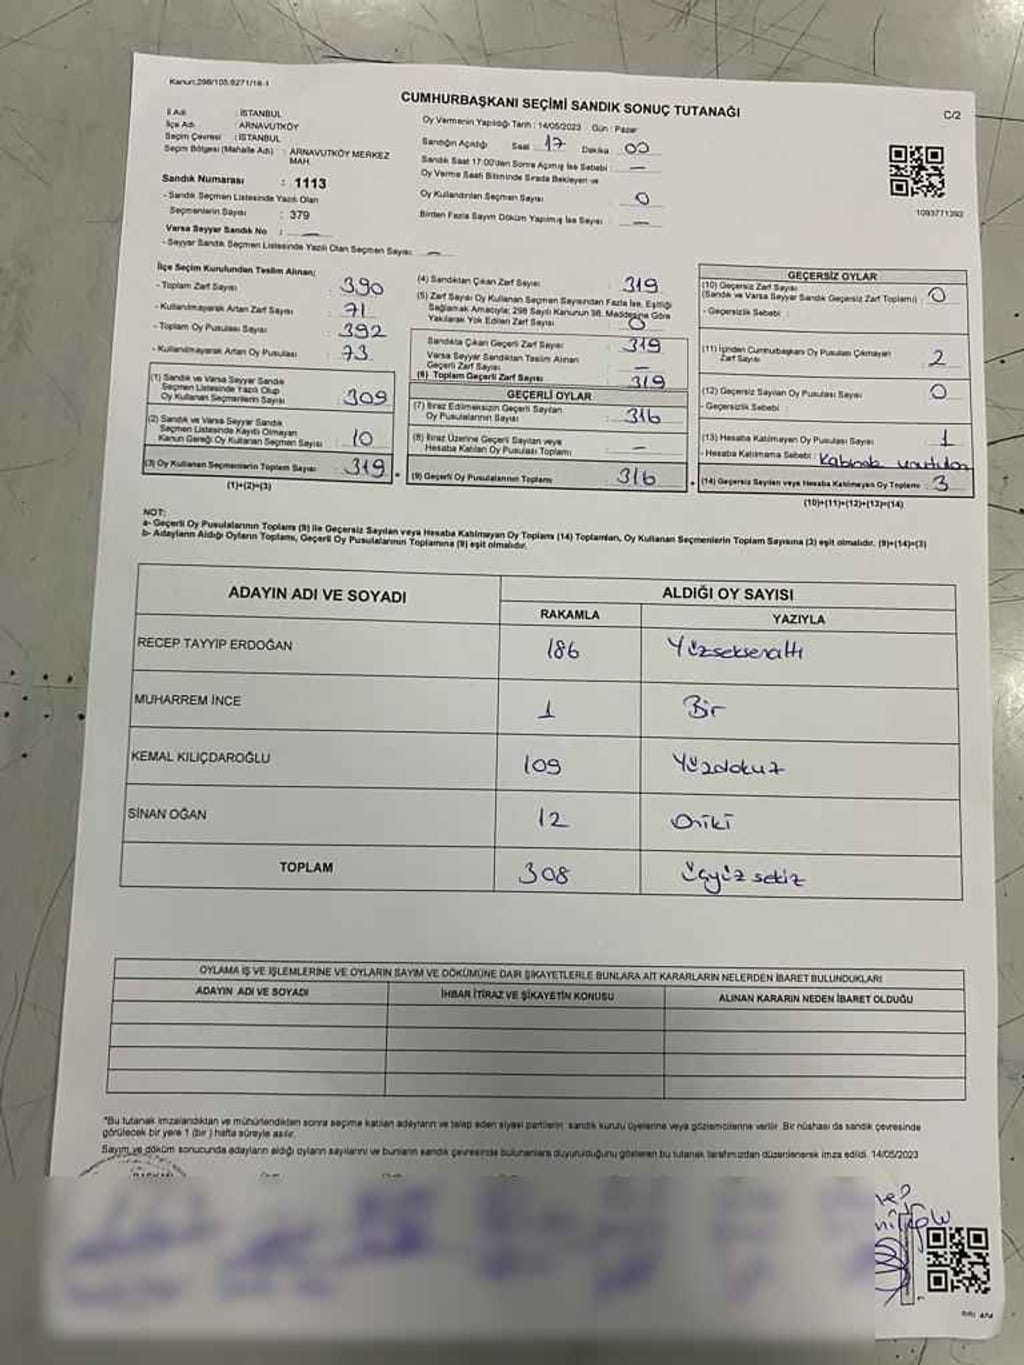 Kanun:298/105.6271/16-1
CUMHURBAŞKANI SEÇİMİ SANDIK SONUÇ TUTANAĞI
C/2
İl Adı : İSTANBUL
İlçe Adı : ARNAVUTKÖY
Seçim Çevresi : İSTANBUL
Seçim Bölgesi (Mahalle Adı) : ARNAVUTKÖY MERKEZ
MAH.
Sandık Numarası : 1113
- Sandık Seçmen Listesinde Yazılı Olan
Seçmenlerin Sayısı : 379
Varsa Seyyar Sandık No : —
- Seyyar Sandık Seçmen Listesinde Yazılı Olan Seçmen Sayısı: —
Oy Vermenin Yapıldığı Tarih : 14/05/2023 Gün : Pazar
Sandığın Açıldığı Saat 17 Dakika 00
Sandık Saat 17:00'den Sonra Açılmış İse Sebebi : —
Oy Verme Saati Bitiminde Sırada Bekleyen ve
Oy Kullandırılan Seçmen Sayısı 0
Birden Fazla Sayım Döküm Yapılmış İse Sayısı : —
1093771392
İlçe Seçim Kurulundan Teslim Alınan;
- Toplam Zarf Sayısı : 390
- Kullanılmayarak Artan Zarf Sayısı : 71
- Toplam Oy Pusulası Sayısı : 392
- Kullanılmayarak Artan Oy Pusulası : 73
(1) Sandık ve Varsa Seyyar Sandık
Seçmen Listesinde Yazılı Olup
Oy Kullanan Seçmenlerin Sayısı : 309
(2) Sandık ve Varsa Seyyar Sandık
Seçmen Listesinde Kayıtlı Olmayan
Kanun Gereği Oy Kullanan Seçmen Sayısı : 10
(3) Oy Kullanan Seçmenlerin Toplam Sayısı : 319
(1)+(2)=(3)
(4) Sandıktan Çıkan Zarf Sayısı : 319
(5) Zarf Sayısı Oy Kullanan Seçmen Sayısından Fazla İse, Eşitliği
Sağlamak Amacıyla; 298 Sayılı Kanunun 98. Maddesine Göre
Yakılarak Yok Edilen Zarf Sayısı : 0
Sandıkta Çıkan Geçerli Zarf Sayısı : 319
Varsa Seyyar Sandıktan Teslim Alınan
Geçerli Zarf Sayısı : —
(6) Toplam Geçerli Zarf Sayısı : 319
GEÇERLİ OYLAR
(7) İtiraz Edilmeksizin Geçerli Sayılan
Oy Pusulalarının Sayısı : 316
(8) İtiraz Üzerine Geçerli Sayılan veya
Hesaba Katılan Oy Pusulaları Toplamı : —
(9) Geçerli Oy Pusulalarının Toplamı : 316
GEÇERSİZ OYLAR
(10) Geçersiz Zarf Sayısı
(Sandık ve Varsa Seyyar Sandık Geçersiz Zarf Toplamı) : 0
- Geçersizlik Sebebi :
(11) İçinden Cumhurbaşkanı Oy Pusulası Çıkmayan
Zarf Sayısı : 2
(12) Geçersiz Sayılan Oy Pusulası Sayısı : 0
- Geçersizlik Sebebi :
(13) Hesaba Katılmayan Oy Pusulası Sayısı : 1
- Hesaba Katılmama Sebebi : Kabinde unutulan
(14) Geçersiz Sayılan veya Hesaba Katılmayan Oy Toplamı : 3
(10)+(11)+(12)+(13)=(14)
NOT:
a- Geçerli Oy Pusulalarının Toplamı (9) ile Geçersiz Sayılan veya Hesaba Katılmayan Oy Toplamı (14) Toplamları, Oy Kullanan Seçmenlerin Toplam Sayısına (3) eşit olmalıdır. (9)+(14)=(3)
b- Adayların Aldığı Oyların Toplamı, Geçerli Oy Pusulalarının Toplamına (9) eşit olmalıdır.
ADAYIN ADI VE SOYADI ALDIĞI OY SAYISI
RAKAMLA YAZIYLA
RECEP TAYYİP ERDOĞAN 186 Yüzseksenaltı
MUHARREM İNCE 1 Bir
KEMAL KILIÇDAROĞLU 109 Yüzdokuz
SİNAN OĞAN 12 Oniki
TOPLAM 308 Üçyüz sekiz
OYLAMA İŞ VE İŞLEMLERİNE VE OYLARIN SAYIM VE DÖKÜMÜNE DAİR ŞİKAYETLERLE BUNLARA AİT KARARLARIN NELERDEN İBARET BULUNDUKLARI
ADAYIN ADI VE SOYADI İHBAR İTİRAZ VE ŞİKAYETİN KONUSU ALINAN KARARIN NEDEN İBARET OLDUĞU
*Bu tutanak imzalandıktan ve mühürlendikten sonra seçime katılan adayların ve talep eden siyasi partilerin, sandık kurulu üyelerine veya gözlemcilerine verilir. Bir nüshası da sandık çevresinde
görülecek bir yere 1 (bir) hafta süreyle asılır.
Sayım ve döküm sonucunda adayların aldığı oyların sayılarını ve bunların sandık çevresinde bulunanlara duyurulduğunu gösteren bu tutanak tarafımızdan düzenlenerek imza edildi. 14/05/2023